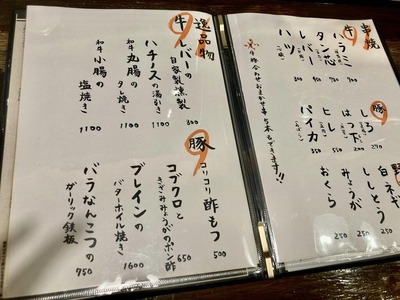 串焼
牛
ハラミ
タン芯
レバー
ハツ
700
※盛り合わせおまかせ5本もできます!!
豚
しろ 200
はつ下 270
ヒレ 350
パイカ 350
野
白ネギ 250
ししとう 250
みょうが 250
おくら
逸品物
牛
レバーの
自家製燻製 800
ハチノスの湯引き 1100
和牛 丸腸の
タレ焼き 1100
和牛 小腸の
塩焼き 1100
豚
コリコリ酢もつ 500
コブクロと
きざみみょうがのポン酢 650
ブレインの
バターホイル焼き 1600
バラなんこつの
ガーリック鉄板 950